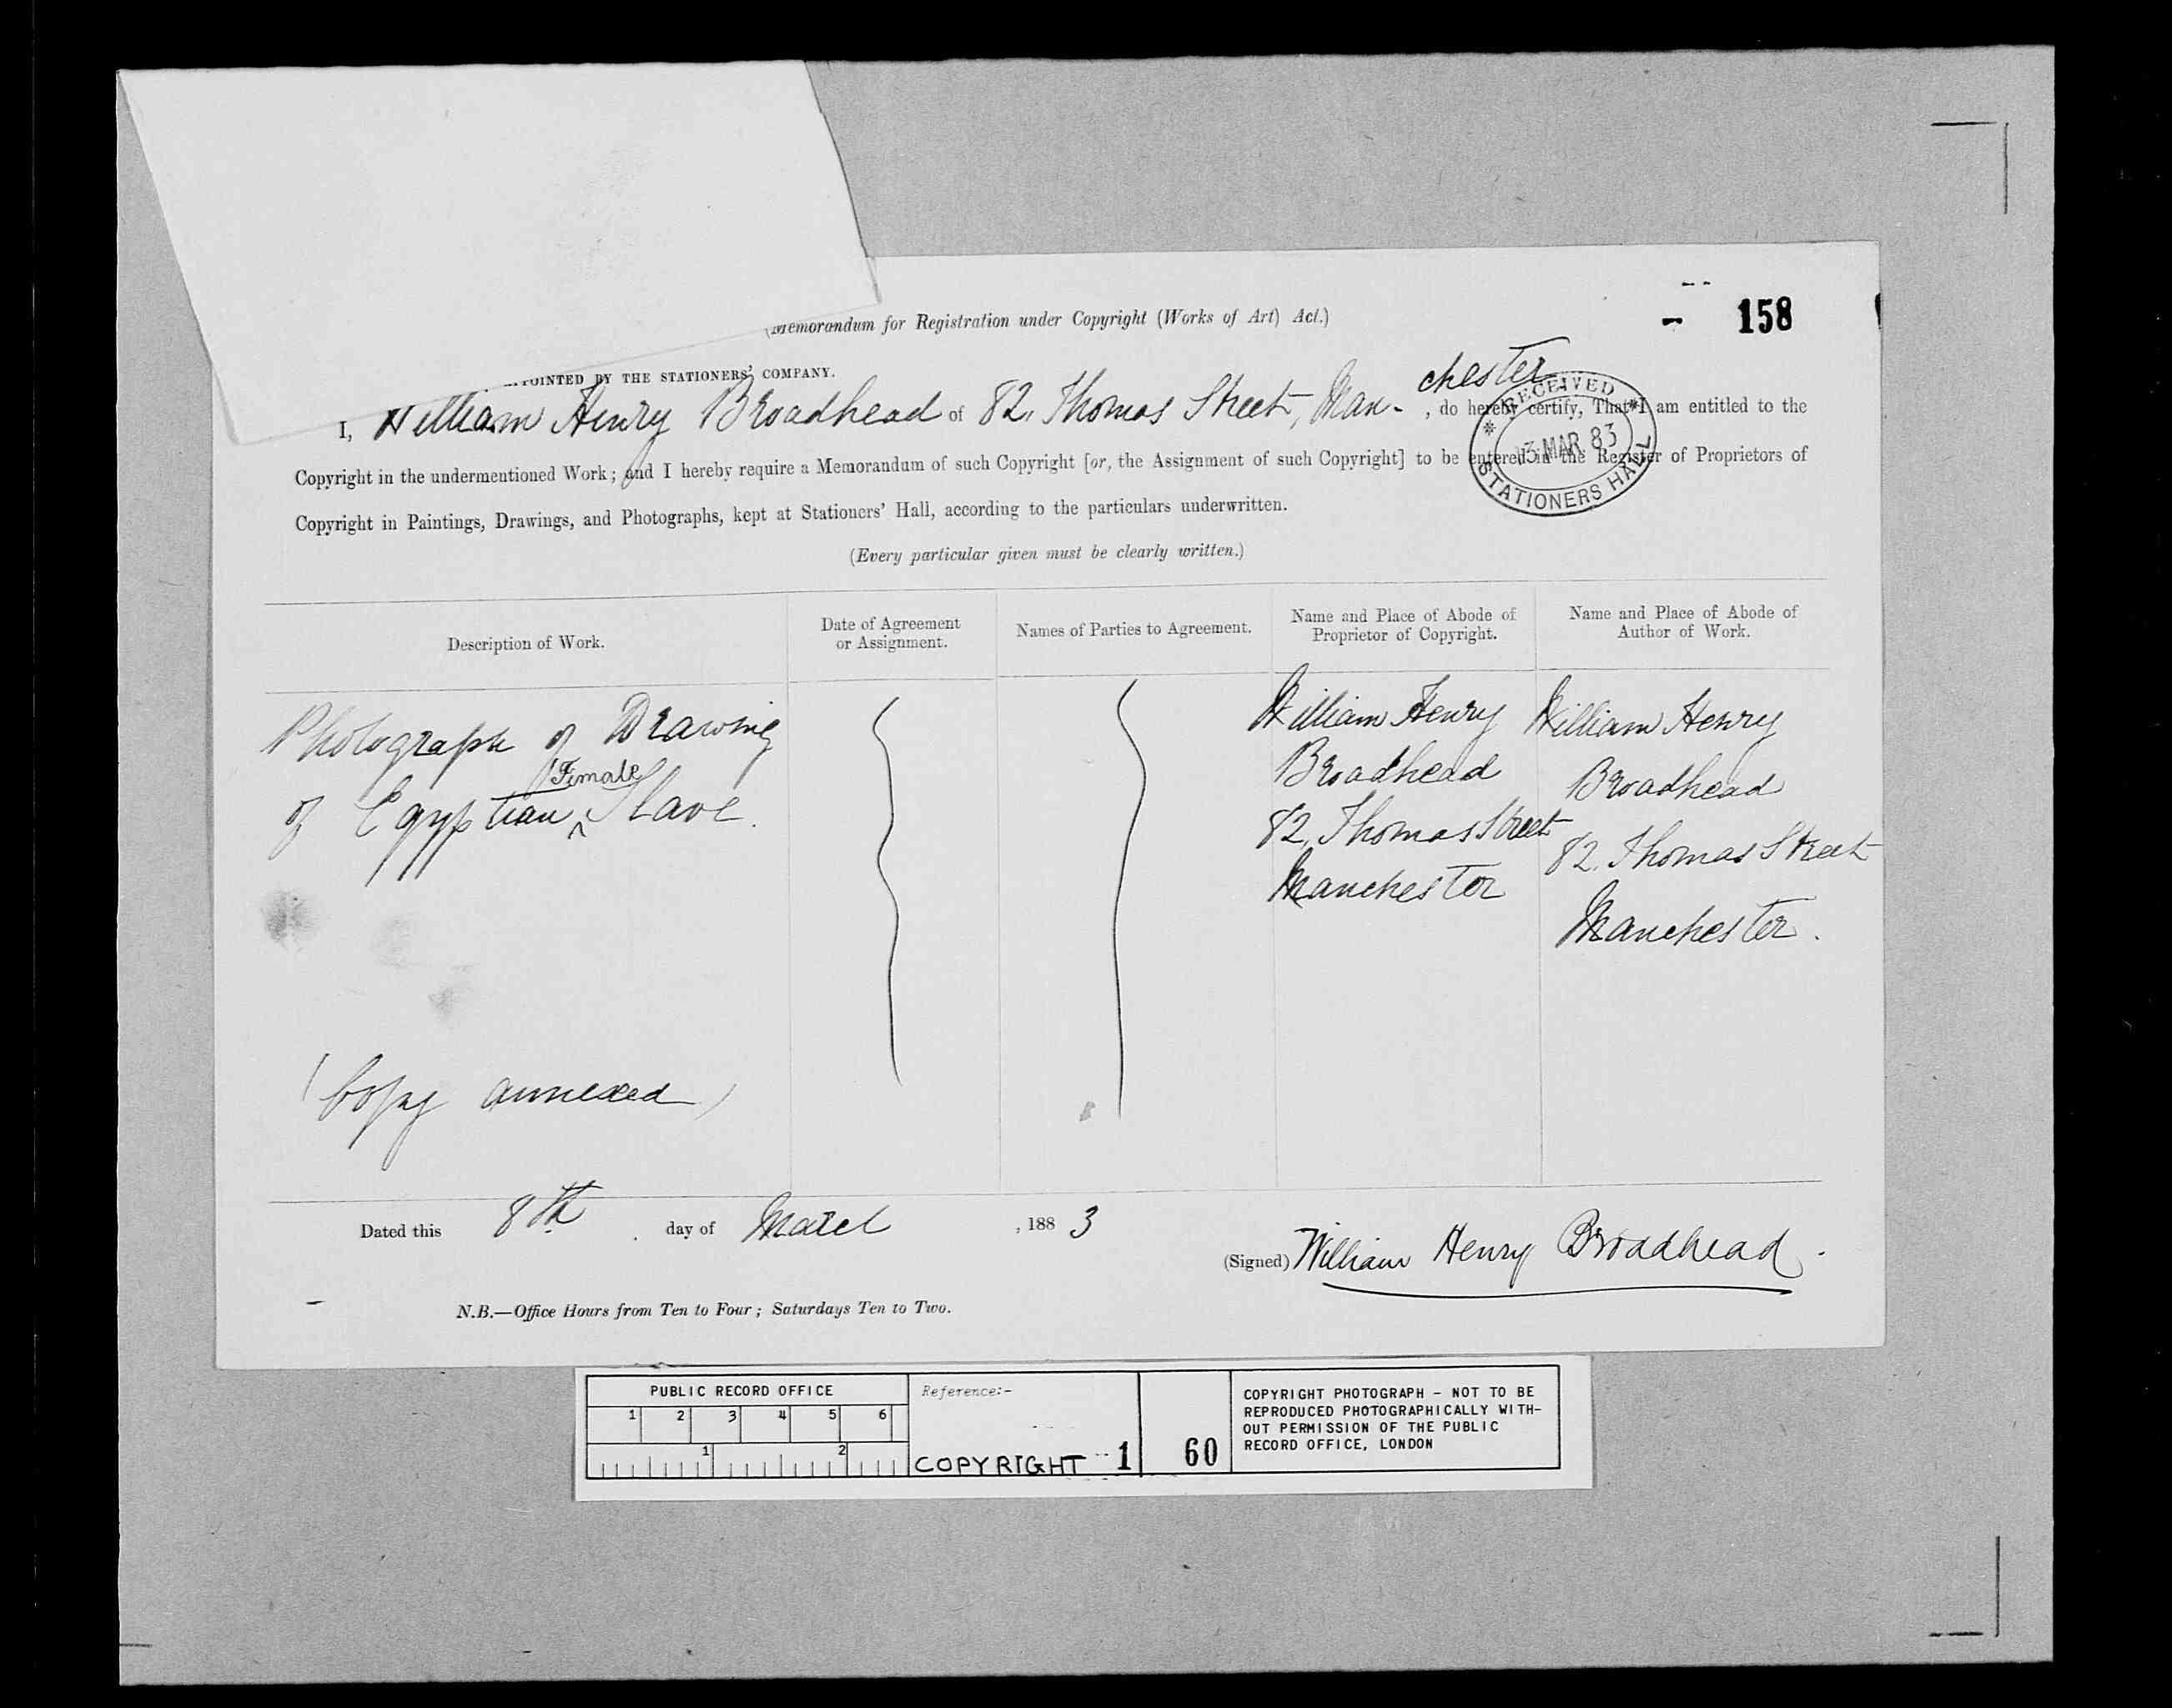 (Memorandum for Registration under Copyright (Works of Art) Act.)
158
BY THE STATIONERS' COMPANY.
I, William Henry Broadhead of 82, Thomas Street, Man-chester, do hereby certify, That I am entitled to the
Copyright in the undermentioned Work; and I hereby require a Memorandum of such Copyright [or, the Assignment of such Copyright] to be entered in the Register of Proprietors of
Copyright in Paintings, Drawings, and Photographs, kept at Stationers' Hall, according to the particulars underwritten.
RECEIVED
13 MAR 83
STATIONERS HALL
(Every particular given must be clearly written.)
Description of Work.
Date of Agreement
or Assignment.
Names of Parties to Agreement.
Name and Place of Abode of
Proprietor of Copyright.
Name and Place of Abode of
Author of Work.
Photograph of Drawing
of Egyptian Female Slave.
(Copy annexed)
William Henry
Broadhead
82, Thomas Street
Manchester
William Henry
Broadhead
82, Thomas Street
Manchester.
Dated this 8th day of March, 1883
(Signed) William Henry Broadhead.
N.B.—Office Hours from Ten to Four; Saturdays Ten to Two.
PUBLIC RECORD OFFICE
1 2 3 4 5 6
1 2
Reference:-
COPYRIGHT 1
60
COPYRIGHT PHOTOGRAPH - NOT TO BE
REPRODUCED PHOTOGRAPHICALLY WITH-
OUT PERMISSION OF THE PUBLIC
RECORD OFFICE, LONDON